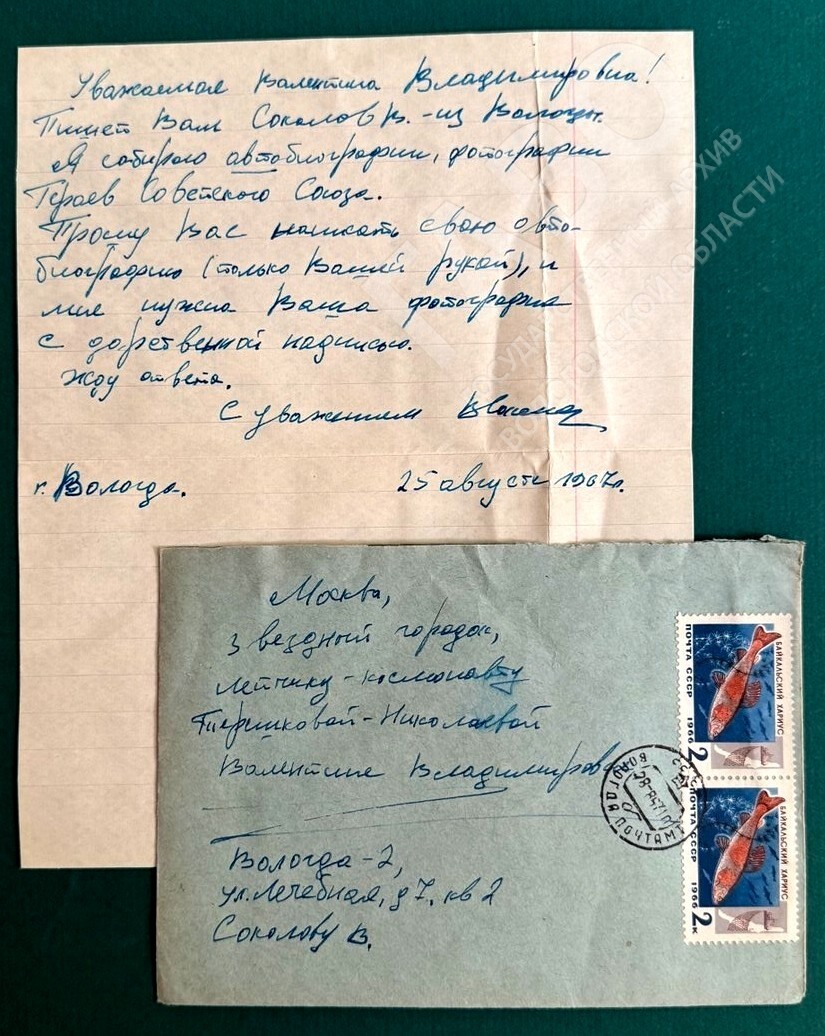 Уважаемая Валентина Владимировна!
Пишет Вам Соколов В. - из Вологды.
Я собираю автобиографии, фотографии
Героев Советского Союза.
Прошу Вас написать свою авто-
биографию (только Вашей рукой), и
мне нужна Ваша фотография
с дарственной надписью.
Жду ответа.
С уважением
г. Вологда.
25 августа 1967г.
Москва,
Звездный городок,
летчику-космонавту
Терешковой-Николаевой
Валентине Владимировне
Вологда-2,
ул. Лечебная, д 7, кв 2
Соколову В.
ПОЧТА СССР 1966
БАЙКАЛЬСКИЙ ХАРИУС
2
ПОЧТА СССР 1966
БАЙКАЛЬСКИЙ ХАРИУС
2к
ВОЛОГДА ПОЧТАМТ
АРХИВ
ВОЛОГОДСКОЙ ОБЛАСТИ